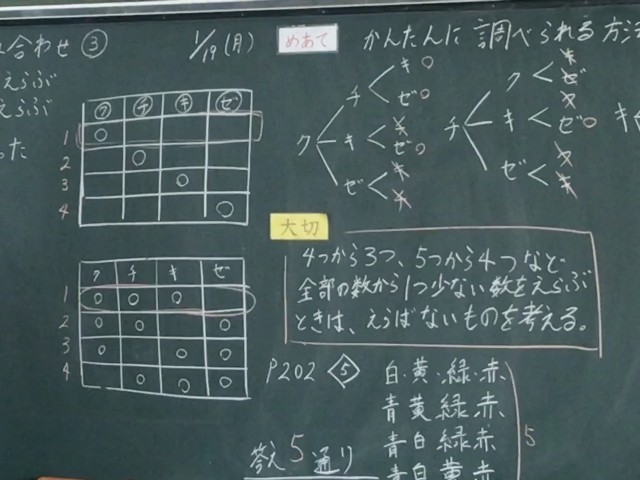 合わせ③
1/19(月)
めあて
かんたんに調べられる方法
えらぶ
えらぶ
った
ク チ キ ゼ
1 ○
2 ○
3 ○
4 ○
ク チ キ ゼ
1 ○ ○ ○
2 ○ ○ ○
3 ○ ○ ○
4 ○ ○ ○
ク
チ
キ ○
ゼ ○
キ
チ
ゼ ○
ゼ
チ
キ
チ
ク
キ
ゼ
キ
ク
ゼ ○
ゼ
ク
キ
大切
4つから3つ、5つから4つなど
全部の数から1つ少ない数をえらぶ
ときは、えらばないものを考える。
P202 ⑤
白・黄・緑・赤
青 黄 緑 赤
青 白 緑 赤
青 白 黄 赤
5
答え 5通り